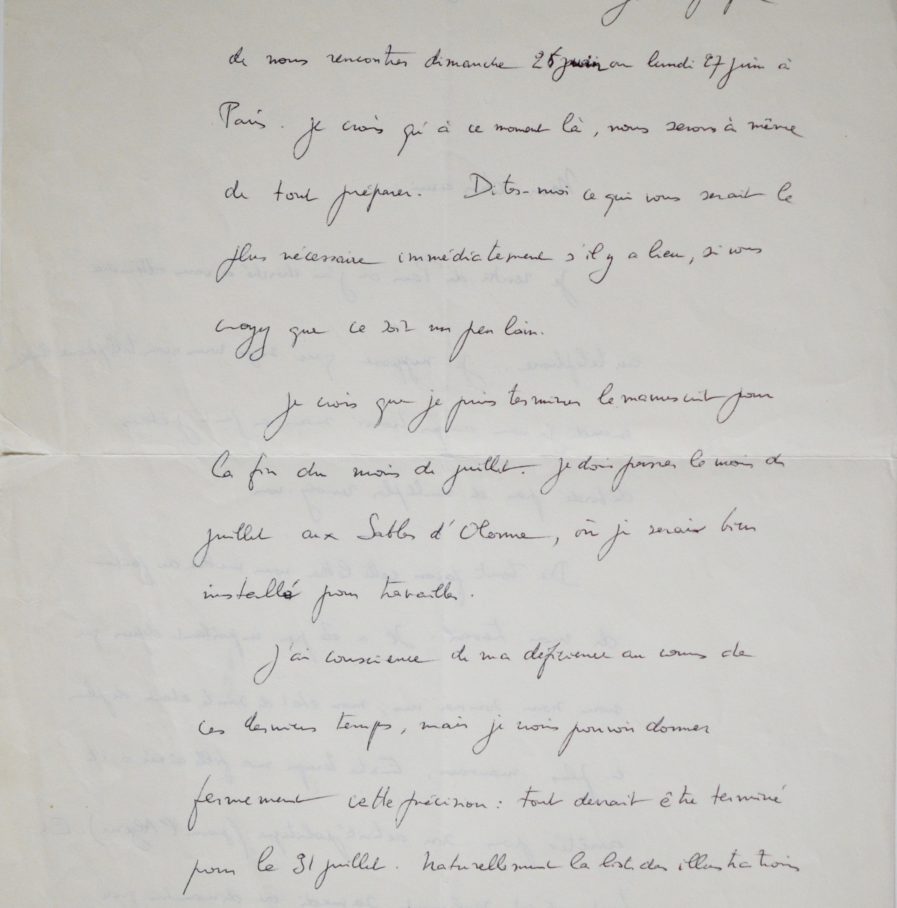 de nous rencontrer dimanche 26 juin ou lundi 27 juin à
Paris. je crois qu'à ce moment là, nous serons à même
de tout préparer. Dites-moi ce qui vous serait le
plus nécessaire immédiatement s'il y a lieu, si vous
croyez que ce soit un peu loin.
Je crois que je puis terminer le manuscrit pour
la fin du mois de juillet. Je dois passer le mois de
juillet aux Sables d'Olonne, où je serais bien
installé pour travailler.
J'ai conscience de ma déficience au cours de
ces derniers temps, mais je crois pouvoir donner
fermement cette précision : tout devrait être terminé
pour le 31 juillet. Naturellement la liste des illustrations